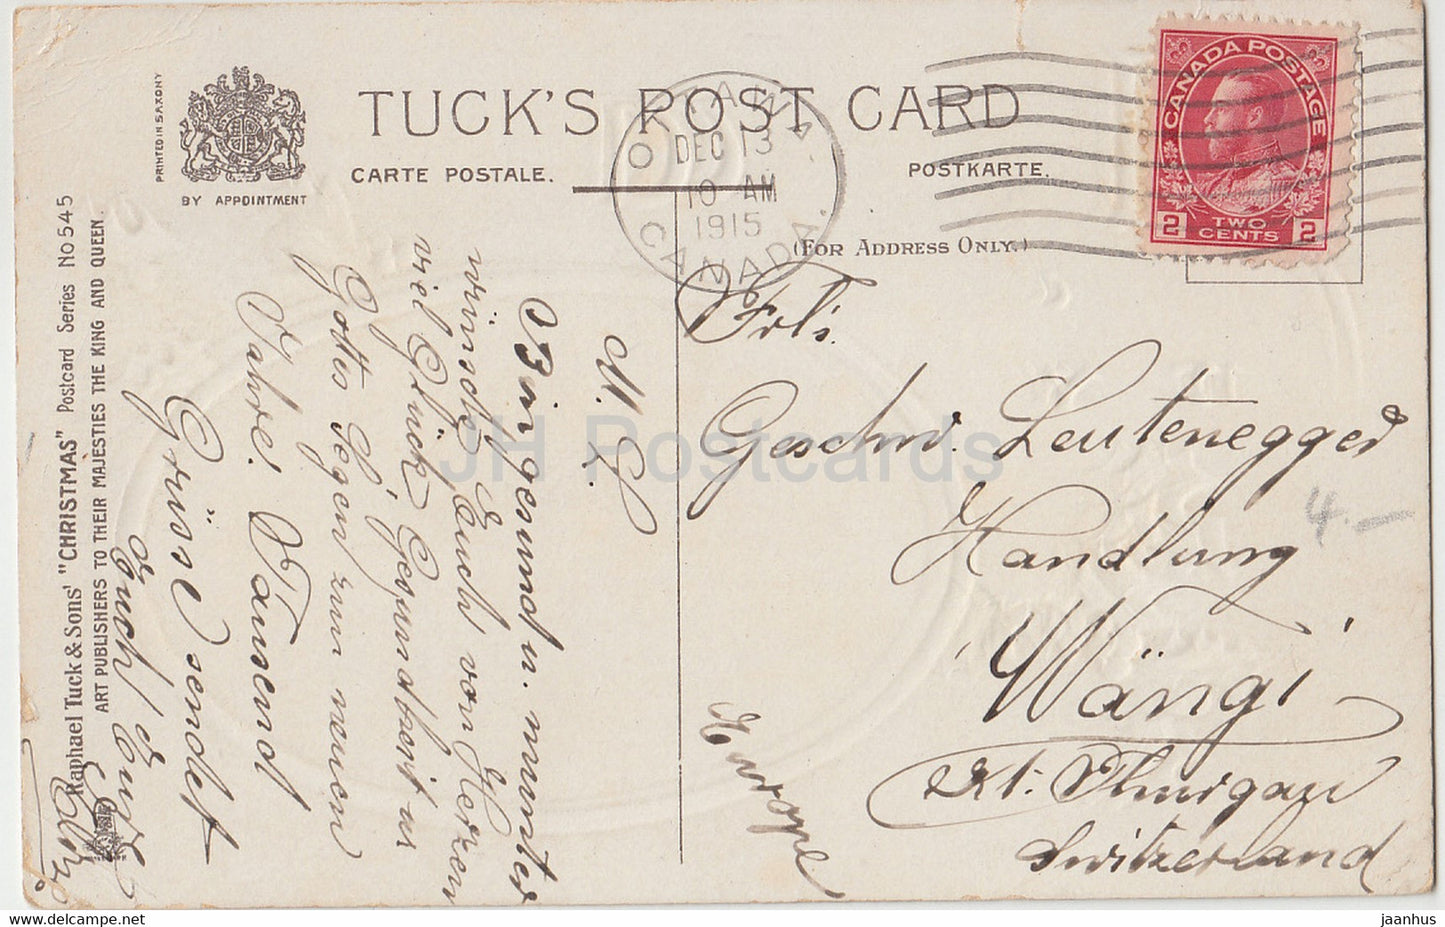 TUCK'S POST CARD
CARTE POSTALE.
POSTKARTE.
(FOR ADDRESS ONLY.)
BY APPOINTMENT
PRINTED IN SAXONY
Raphael Tuck & Sons' "CHRISTMAS" Postcard Series No 545
ART PUBLISHERS TO THEIR MAJESTIES THE KING AND QUEEN.
OTTAWA.
DEC 13
10 AM
1915
CANADA.
CANADA POSTAGE
2 TWO CENTS 2
M. L.
Bin gesund u. munter
wünsche Euch von Herzen
viel Glück Gesundheit u
Gottes Segen zum neuen
Jahre. Tausend
Grüsse sendet
Euch Eure
Frls.
Geschw. Leutenegger
Handlung
Wängi
Kt. Thurgau
Switzerland
Europe
4.—
JH Postcards
jaanhus